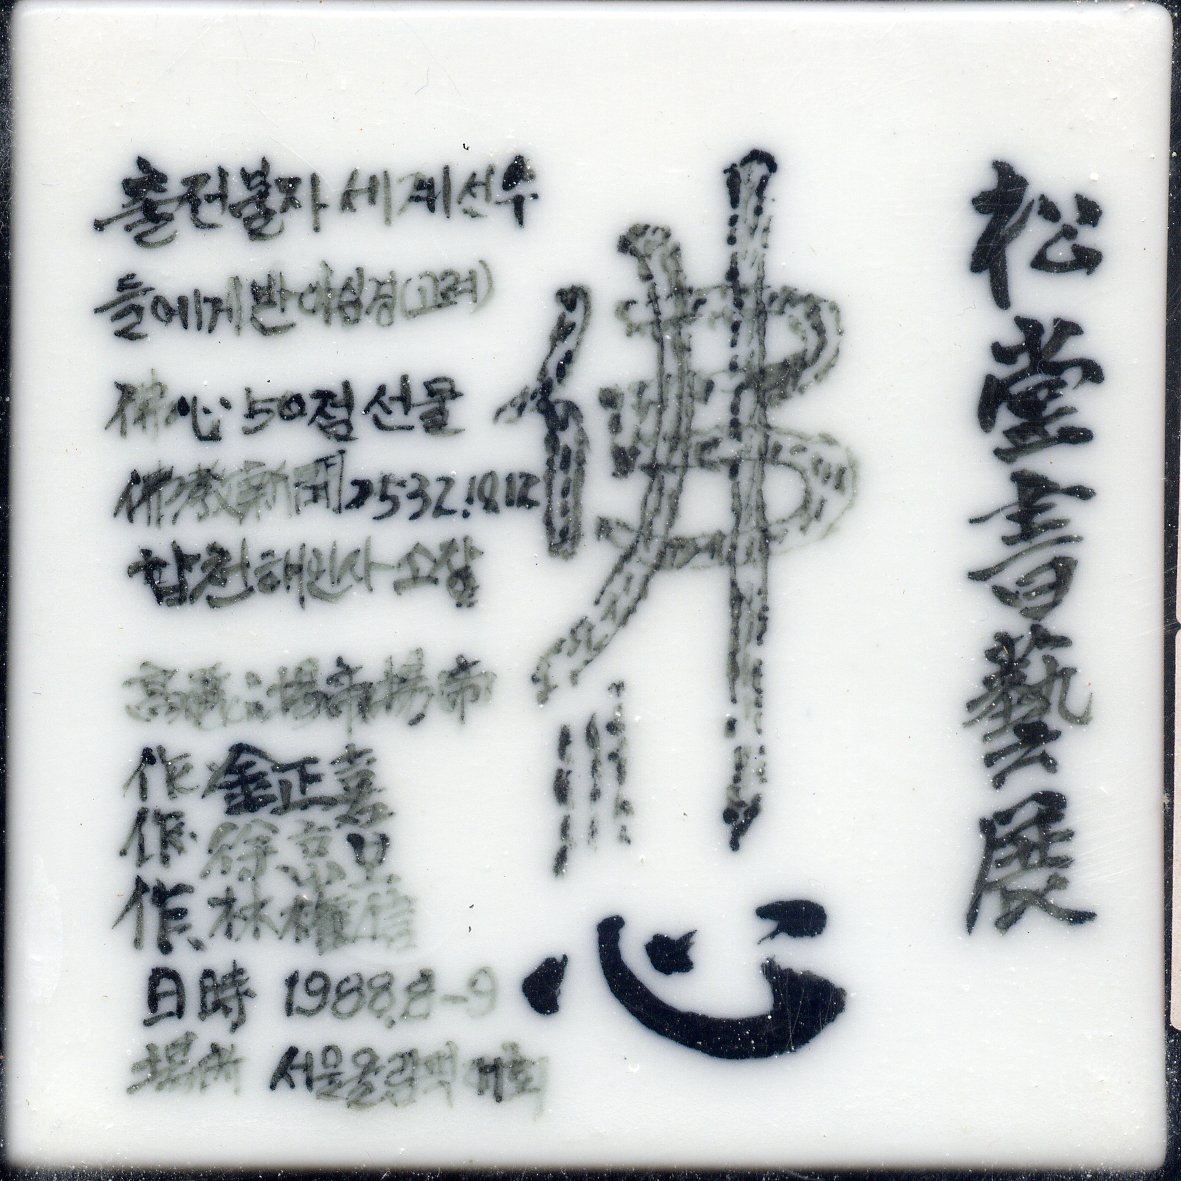 松堂書藝展
佛心
출전불자 세계선수
들에게 반야심경(고려)
佛心 50점 선물
佛敎新聞 2532.10.12
합천해인사 소장
作 金正喜
作 徐京
作 林權
日時 1988.8-9
場所 서울올림픽